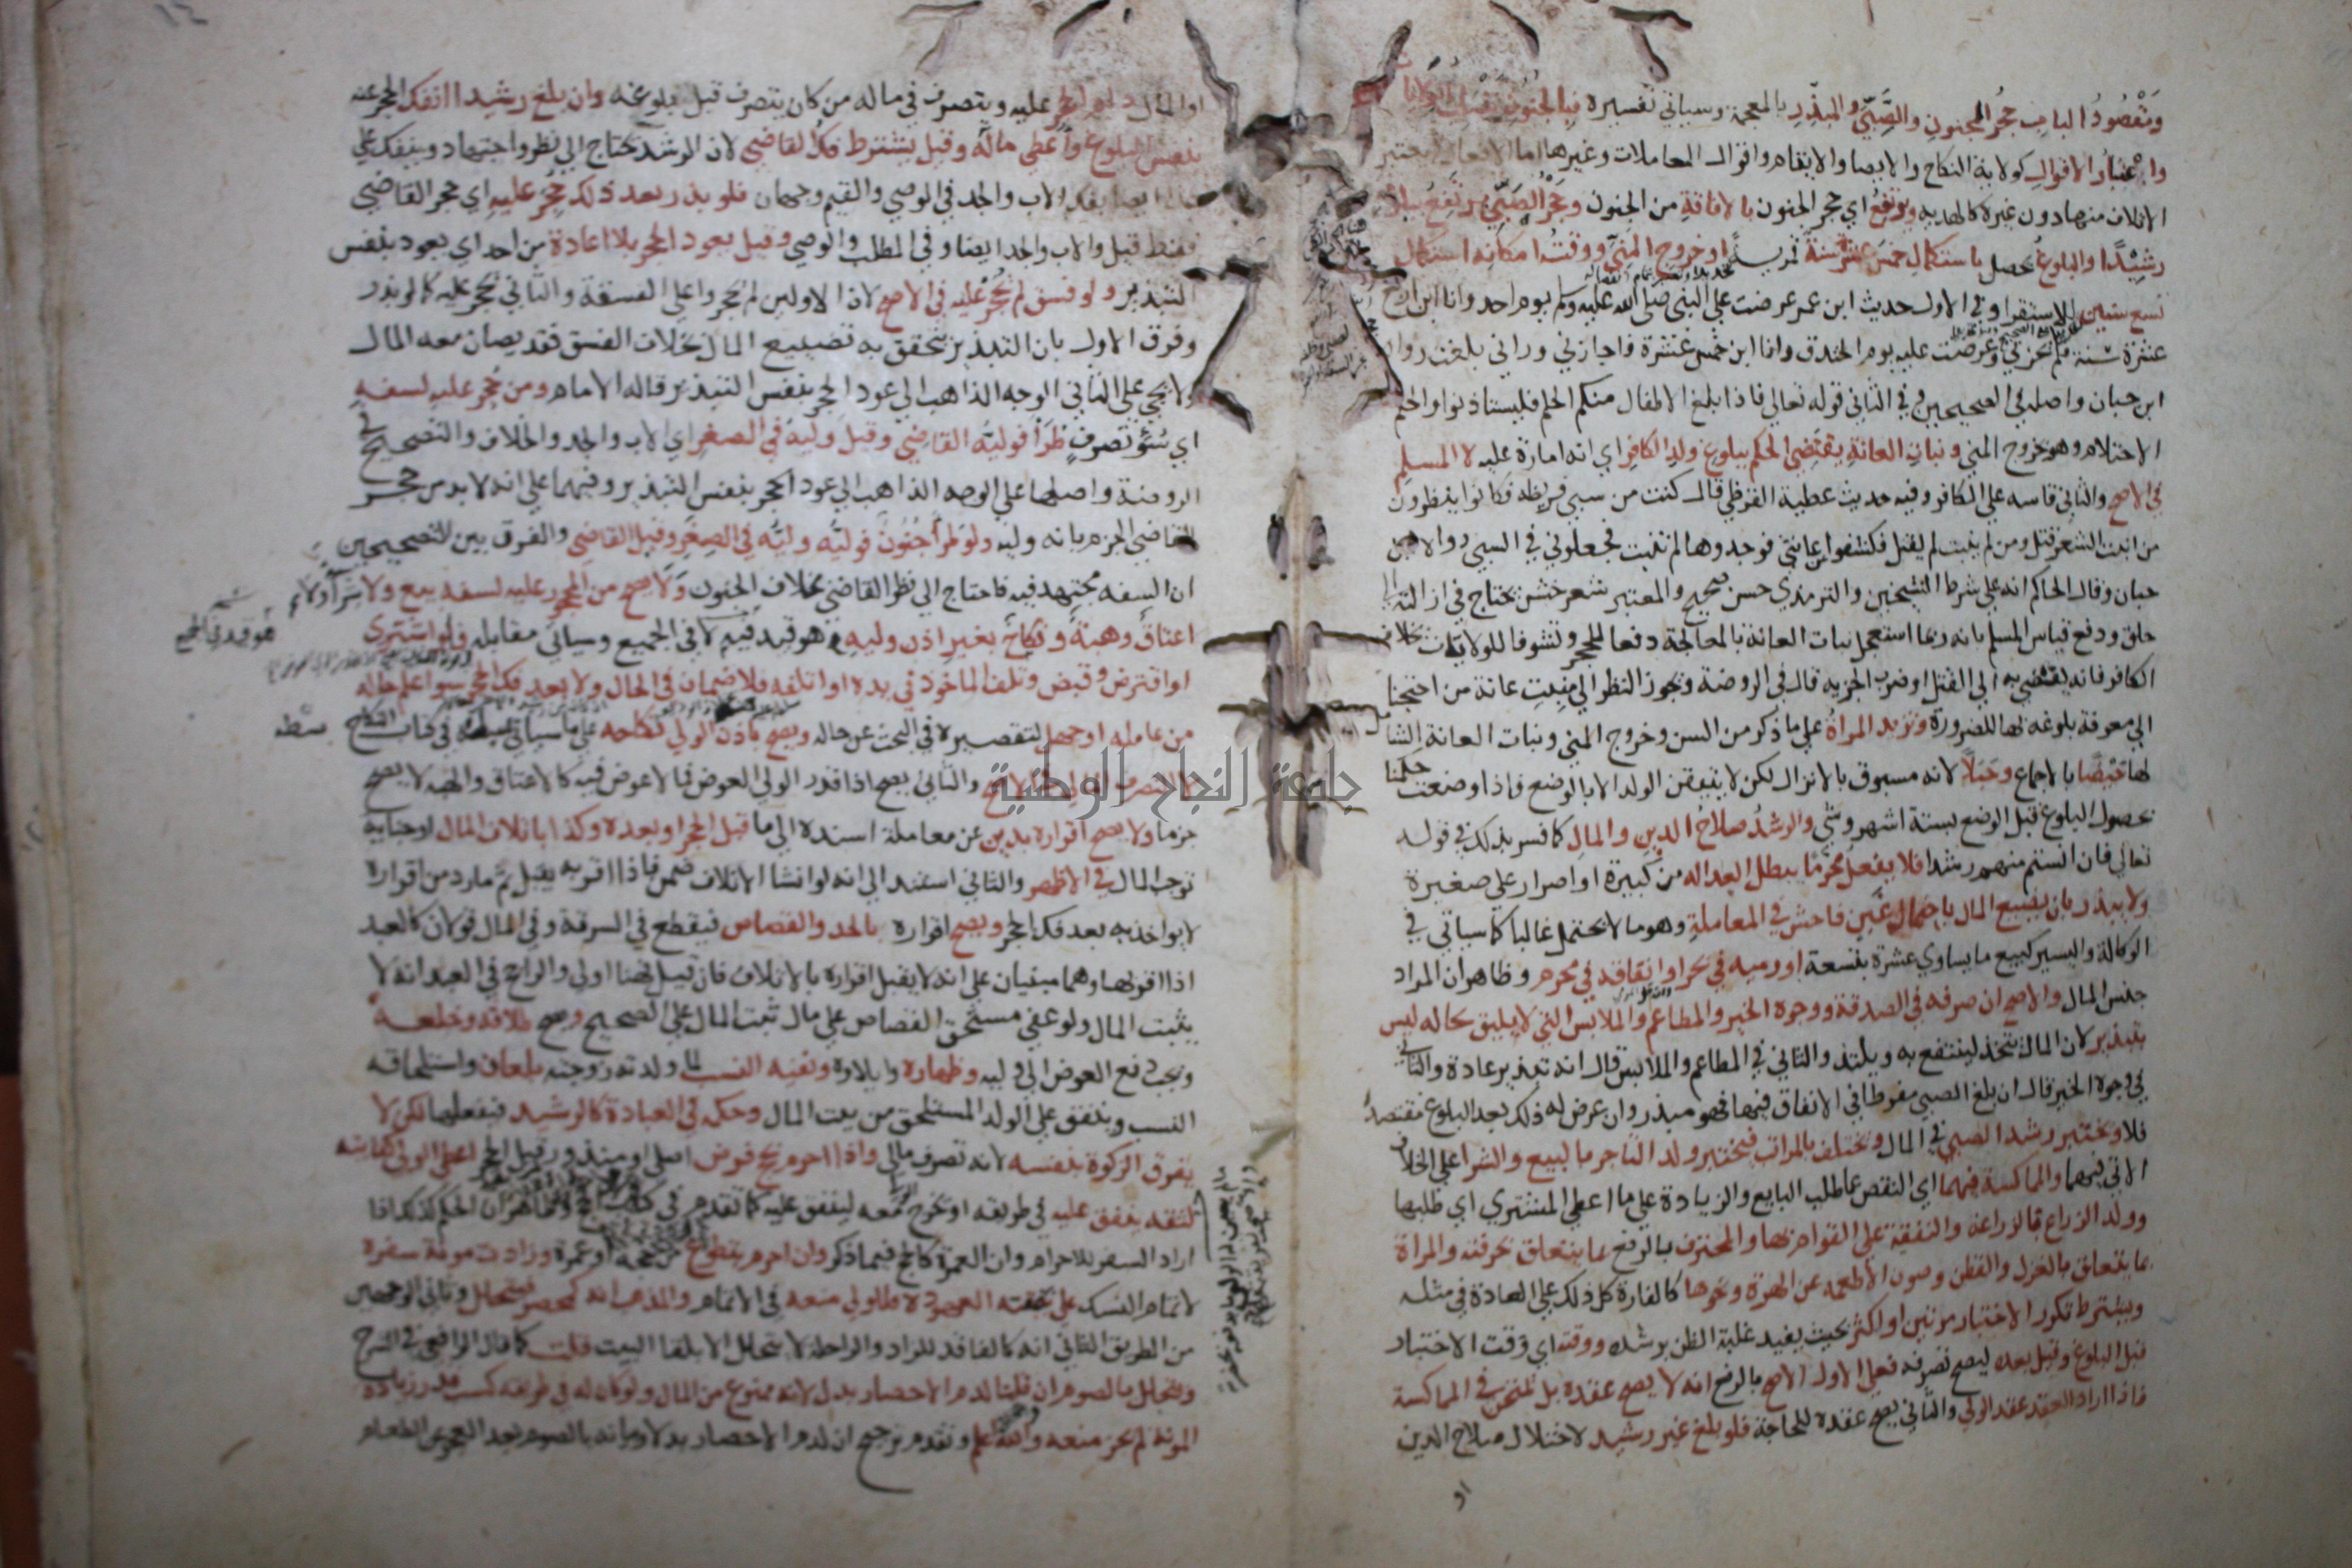 ومقصود الباب حجر المجنون والصبي والمبذر بالمعجمة وسياتي تفسيره فبالجنون تنسلب الولايات
واعتبار الاقوال كولاية النكاح والايصا والايتام واقوال المعاملات وغيرها اما الافعال فيعتبر
الاتلاف منها دون غيره كالهدية ويرتفع اي حجر الجنون بالافاقة من الجنون وحجر الصبي يرتفع ببلوغه
رشيدا والبلوغ يحصل باستكمال خمس عشرة سنة قمرية او خروج المني ووقت امكانه استكمال
تسع سنين للاستقرا وفي الاول حديث ابن عمر عرضت على النبي صلى الله عليه وسلم يوم احد وانا ابن اربع
عشرة سنة فلم يجزني وعرضت عليه يوم الخندق وانا ابن خمس عشرة فاجازني وراني بلغت رواه
ابن حبان واصله في الصحيحين وفي الثاني قوله تعالى فاذا بلغ الاطفال منكم الحلم فليستاذنوا والحلم
الاحتلام وهو خروج المني ونبات العانة يقتضي الحكم ببلوغ ولد الكافر اي انه امارة عليه لا المسلم
في الاصح والثاني قاسه على الكافر وفيه حديث عطية القرظي قال كنت من سبي قريظة فكانوا ينظرون
من انبت الشعر قتل ومن لم ينبت لم يقتل فكشفوا عانتي فوجدوها لم تنبت فجعلوني في السبي رواه ابن
حبان وقال الحاكم انه على شرط الشيخين والترمذي حسن صحيح والمعتبر شعر خشن يحتاج في ازالته الى
حلق ودفع قياس المسلم بانه ربما استعجل نبات العانة بالمعالجة دفعا للحجر وتشوفا للولايات بخلاف
الكافر فانه يفضي به الى القتل او ضرب الجزية قال في الروضة ويجوز النظر الى منبت عانة من احتجنا
الى معرفة بلوغه بها للضرورة وتزيد المراة على ما ذكر من السن وخروج المني ونبات العانة الشامل
لها حيضا بالاجماع وحبلا لانه مسبوق بالانزال لكن لا يتيقن الولد الا بالوضع فاذا وضعت حكمنا
بحصول البلوغ قبل الوضع بستة اشهر وشي والرشد صلاح الدين والمال كما فسر بذلك في قوله
تعالى فان انستم منهم رشدا فلا يفعل محرما يبطل العدالة من كبيرة او اصرار على صغيرة
ولا يبذر بان يضيع المال باحتمال غبن فاحش في المعاملة وهو ما لا يحتمل غالبا كما سياتي في
الوكالة واليسير كبيع ما يساوي عشرة بتسعة او رميه في بحر او انفاقه في محرم وظاهر ان المراد
جنس المال والاصح ان صرفه في الصدقة ووجوه الخير والمطاعم والملابس التي لا يليق بحاله ليس
بتبذير لان المال يتخذ لينتفع به ويلتذ والثاني في المطاعم والملابس قال انه تبذير عادة والثاني
في وجوه الخير قال ان بلغ الصبي مفرطا في الانفاق فيها فهو مبذر وان عرض له ذلك بعد البلوغ مقتصدا
فلا ويختبر رشد الصبي في المال ويختلف بالمراتب فيختبر ولد التاجر بالبيع والشرا على الخلاف
الاتي فيهما والمماكسة فيهما اي النقص عما طلب البايع والزيادة على ما اعطى المشتري اي طلبها
وولد الزراع بالزراعة والنفقة على القوام بها والمحترف بالرفع بما يتعلق بحرفته والمراة
بما يتعلق بالغزل والقطن وصون الاطعمة عن الهرة ونحوها كالفارة كل ذلك على العادة في مثله
ويشترط تكرر الاختبار مرتين او اكثر بحيث يفيد غلبة الظن برشده ووقته اي وقت الاختبار
قبل البلوغ وقيل بعده ليصح تصرفه فعلى الاول الاصح بالرفع انه لا يصح عقده بل يمتحن في المماكسة
فاذا اراد العقد عقد الولي والثاني يصح عقده للحاجة فلو بلغ غير رشيد لاختلال صلاح الدين
او
او المال دام الحجر عليه ويتصرف في ماله من كان يتصرف قبل بلوغه وان بلغ رشيدا انفك الحجر عنه
بنفس البلوغ واعطي ماله وقيل يشترط فك القاضي لان الرشد يحتاج الى نظر واجتهاد وينفك على
هذا ايضا بفك الاب والجد وفي الوصي والقيم وجهان فلو بذر بعد ذلك حجر عليه اي حجر القاضي
فقط قيل والاب والجد ايضا وفي المطلب والوصي وقيل يعود الحجر بلا اعادة من احد اي يعود بنفس
التبذير ولو فسق لم يحجر عليه في الاصح لان الاولين لم يحجروا على الفسقة والثاني يحجر عليه كما لو بذر
وفرق الاول بان التبذير يتحقق به تضييع المال بخلاف الفسق فقد يصان معه المال
ولا يجي على الثاني الوجه الذاهب الى عود الحجر بنفس التبذير قاله الامام ومن حجر عليه لسفه
اي سوء تصرف طرا فوليه القاضي وقيل وليه في الصغر اي الاب والجد والخلاف والتصحيح في
الروضة واصلها على الوجه الذاهب الى عود الحجر بنفس التبذير وفيهما على انه لا بد من حجر
القاضي الجزم بانه وليه ولو طرا جنون فوليه وليه في الصغر وقيل القاضي والفرق بين التصحيحين
ان السفه مجتهد فيه فاحتاج الى نظر القاضي بخلاف الجنون ولا يصح من المحجور عليه لسفه بيع ولا شرا ولا
اعتاق وهبة ونكاح بغير اذن وليه هو قيد فيه لا في الجميع وسياتي مقابله فلو اشترى
او اقترض وقبض وتلف الماخوذ في يده او اتلفه فلا ضمان في الحال ولا بعد فك الحجر سوا علم حاله
من عامله او جهل لتقصيره في البحث عن حاله ويصح باذن الولي نكاحه على ما سياتي بسطه في كتاب النكاح
لا التصرف المالي في الاصح والثاني يصح اذا قدر الولي العوض فما لا عوض فيه كالاعتاق والهبة لا يصح
جزما ولا يصح اقراره بدين عن معاملة اسنده الى ما قبل الحجر او بعده وكذا باتلاف المال او جناية
توجب المال في الاظهر والثاني استند الى انه لو انشا الاتلاف ضمن فاذا اقر به يقبل ثم ما رد من اقراره
لا يواخذ به بعد فك الحجر ويصح اقراره بالحد والقصاص فيقطع في السرقة وفي المال قولان كالعبد
اذا اقر بها وهما مبنيان على انه لا يقبل اقراره بالاتلاف فان قبل فهنا اولى والراجح في العبد انه لا
يثبت المال ولو عفى مستحق القصاص على مال ثبت المال على الصحيح ويصح طلاقه وخلعه
ويجب دفع العوض الى وليه وظهاره وايلاوه ونفيه النسب لما ولدته زوجته بلعان واستلحاقه
النسب وينفق على الولد المستلحق من بيت المال وحكمه في العبادة كالرشيد فيفعلها لكن لا
يفرق الزكوة بنفسه لانه تصرف مالي واذا احرم بحج فرض اصلي او منذور قبل الحجر اعطى الولي كفايته
لثقة ينفق عليه في طريقه او يخرج معه لينفق عليه كما تقدم في كتاب الحج وظاهر ان الحكم كذلك اذا
اراد السفر للاحرام وان العمرة كالحج فيما ذكر وان احرم بتطوع من حجة او عمرة وزادت مونة سفره
لاتمام النسك على نفقته المعهودة فللولي منعه في الاتمام والمذهب انه كمحصر فيتحلل وثاني الوجهين
من الطريق الثاني انه كالفاقد للزاد والراحلة لا يتحلل الا بلقا البيت قلت كما قال الرافعي في الشرح
ويتحلل بالصوم ان قلنا لدم الاحصار بدل لانه ممنوع من المال ولو كان له في طريقه كسب قدر زيادة
المونة لم يجز منعه والله اعلم وتقدم ترجيح ان لدم الاحصار بدلا وانه بالصوم بعد العجز عن الطعام
هو قيد في الجميع
بسطه
جامعة النجاح الوطنية